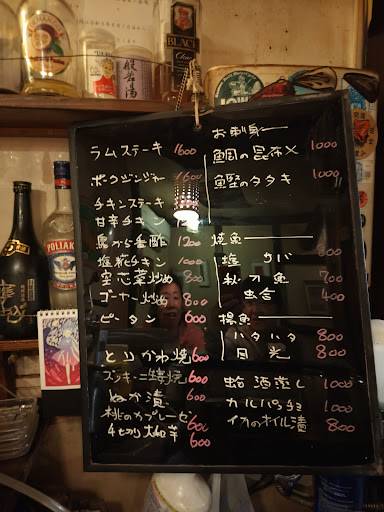 ラムステーキ 1600
ポークジンジャー 1600
チキンステーキ
甘辛チキン
黒から香酢 1200
塩糀チキン 1000
空芯菜炒め 800
ゴーヤー炒め 800
ピータン 600
とりかわ焼 600
ズッキーニ蜂焼 600
ぬか漬 600
桃のカプレーゼ 600
600
お刺身
鯛の昆布〆 1000
鰹のタタキ 1000
焼魚
塩サバ 800
秋刀魚 700
虫合 400
揚魚
ハタハタ 800
目光 800
蛤酒蒸し 1000
カルパッチョ 1000
イカのオイル漬 800
POLIAK
BLACK